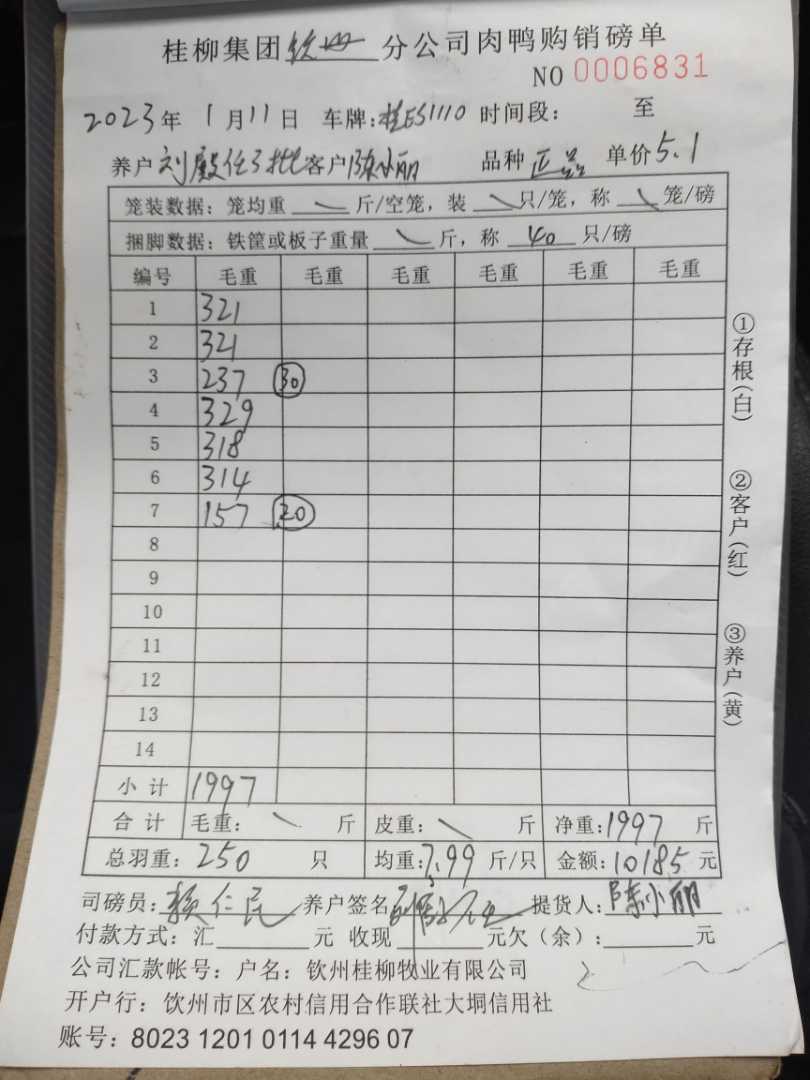 桂柳集团钦州分公司肉鸭购销磅单
NO 0006831
2023年 1月11日 车牌:桂ES1110 时间段: 至
养户 刘殿任3批 客户 陈小丽 品种 正品 单价5.1
笼装数据: 笼均重 \ 斤/空笼, 装 \ 只/笼, 称 \ 笼/磅
捆脚数据: 铁筐或板子重量 \ 斤, 称 40 只/磅
编号 毛重 毛重 毛重 毛重 毛重 毛重
1 321
2 321
3 237 30
4 329
5 318
6 314
7 157 20
8
9
10
11
12
13
14
小计 1997
合计 毛重: \ 斤 皮重: \ 斤 净重:1997 斤
总羽重: 250 只 均重:7.99 斤/只 金额:10185元
司磅员: 赖仁民 养户签名 提货人: 陈小丽
付款方式: 汇 元 收现 元欠(余): 元
公司汇款帐号: 户名: 钦州桂柳牧业有限公司
开户行: 钦州市区农村信用合作联社大垌信用社
账号: 8023 1201 0114 4296 07
①存根(白)
②客户(红)
③养户(黄)